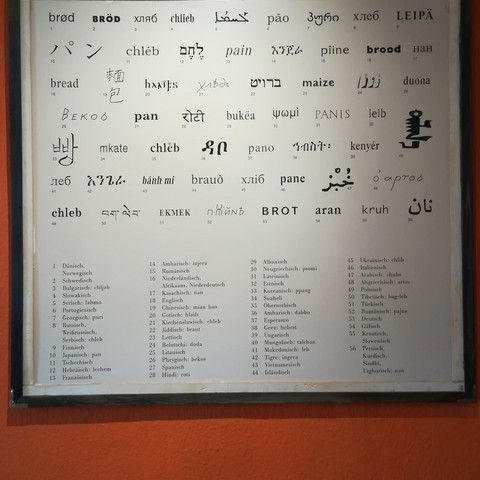 brød BRÖD хляб chlieb ܠܚܡܐ pão პური хлеб LEIPÄ
パン chléb לֶחֶם pain እንጀራ pîine brood нан
bread 麵包 ברויט maize duona
ΒΕΚΟΣ pan रोटी bukëa ψωμί PANIS leib
빵 mkate chlèb ዳቦ pano ኅብስት፡ kenyér
леб እንጌራ bánh mì brauð хліб pane خُبْز ὁ ἄρτος
chleb EKMEK BROT aran kruh نان
1 Dänisch,
Norwegisch
2 Schwedisch
3 Bulgarisch: chljab
4 Slowakisch
5 Syrisch: lahmo
6 Portugiesisch
7 Georgisch: puri
8 Russisch,
Weißrussisch,
Serbisch: chleb
9 Finnisch
10 Japanisch: pan
11 Tschechisch
12 Hebräisch: lechem
13 Französisch
14 Amharisch: injera
15 Rumänisch
16 Niederländisch,
Afrikaans, Niederdeutsch
17 Kasachisch: nan
18 Englisch
19 Chinesisch: mian bao
20 Gotisch: hlaifs
21 Kirchenslawisch: chleb
22 Jiddisch: broit
23 Lettisch
24 Belutschi: doda
25 Litauisch
26 Phrygisch: bekos
27 Spanisch
28 Hindi: roti
29 Albanisch
30 Neugriechisch: psomi
31 Lateinisch
32 Estnisch
33 Koreanisch: ppang
34 Suaheli
35 Obersorbisch
36 Amharisch: dabbo
37 Esperanto
38 Geez: hebest
39 Ungarisch
40 Mongolisch: talchan
41 Makedonisch: leb
42 Tigre: ingera
43 Vietnamesisch
44 Isländisch
45 Ukrainisch: chlib
46 Italienisch
47 Arabisch: chubs
48 Altgriechisch: artos
49 Polnisch
50 Tibetisch: bag-leb
51 Türkisch
53 Deutsch
54 Gälisch
55 Kroatisch,
Slowenisch
56 Persisch,
Kurdisch,
Sindhi,
Uighurisch: nan